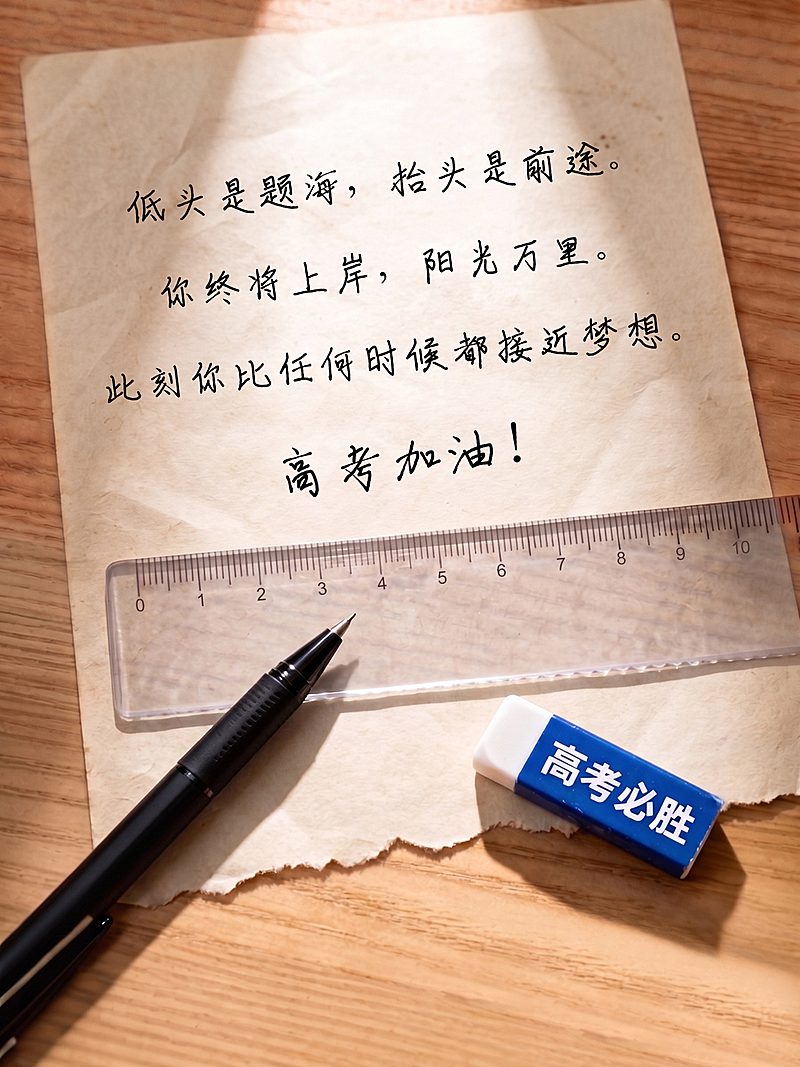 低头是题海，抬头是前途。
你终将上岸，阳光万里。
此刻你比任何时候都接近梦想。
高考加油！
0 1 2 3 4 5 6 7 8 9 10
高考必胜